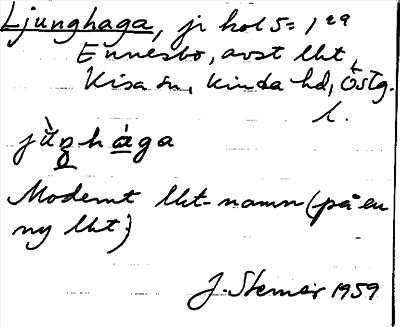 Ljunghaga, jr kol 5 = 1ra
Ennesbo, avst lht,
Kisa sn, Kinda hd, Östg.
l.
jùŋhàga
Modernt lht-namn (på en
ny lht)
J. Stemeir 1959